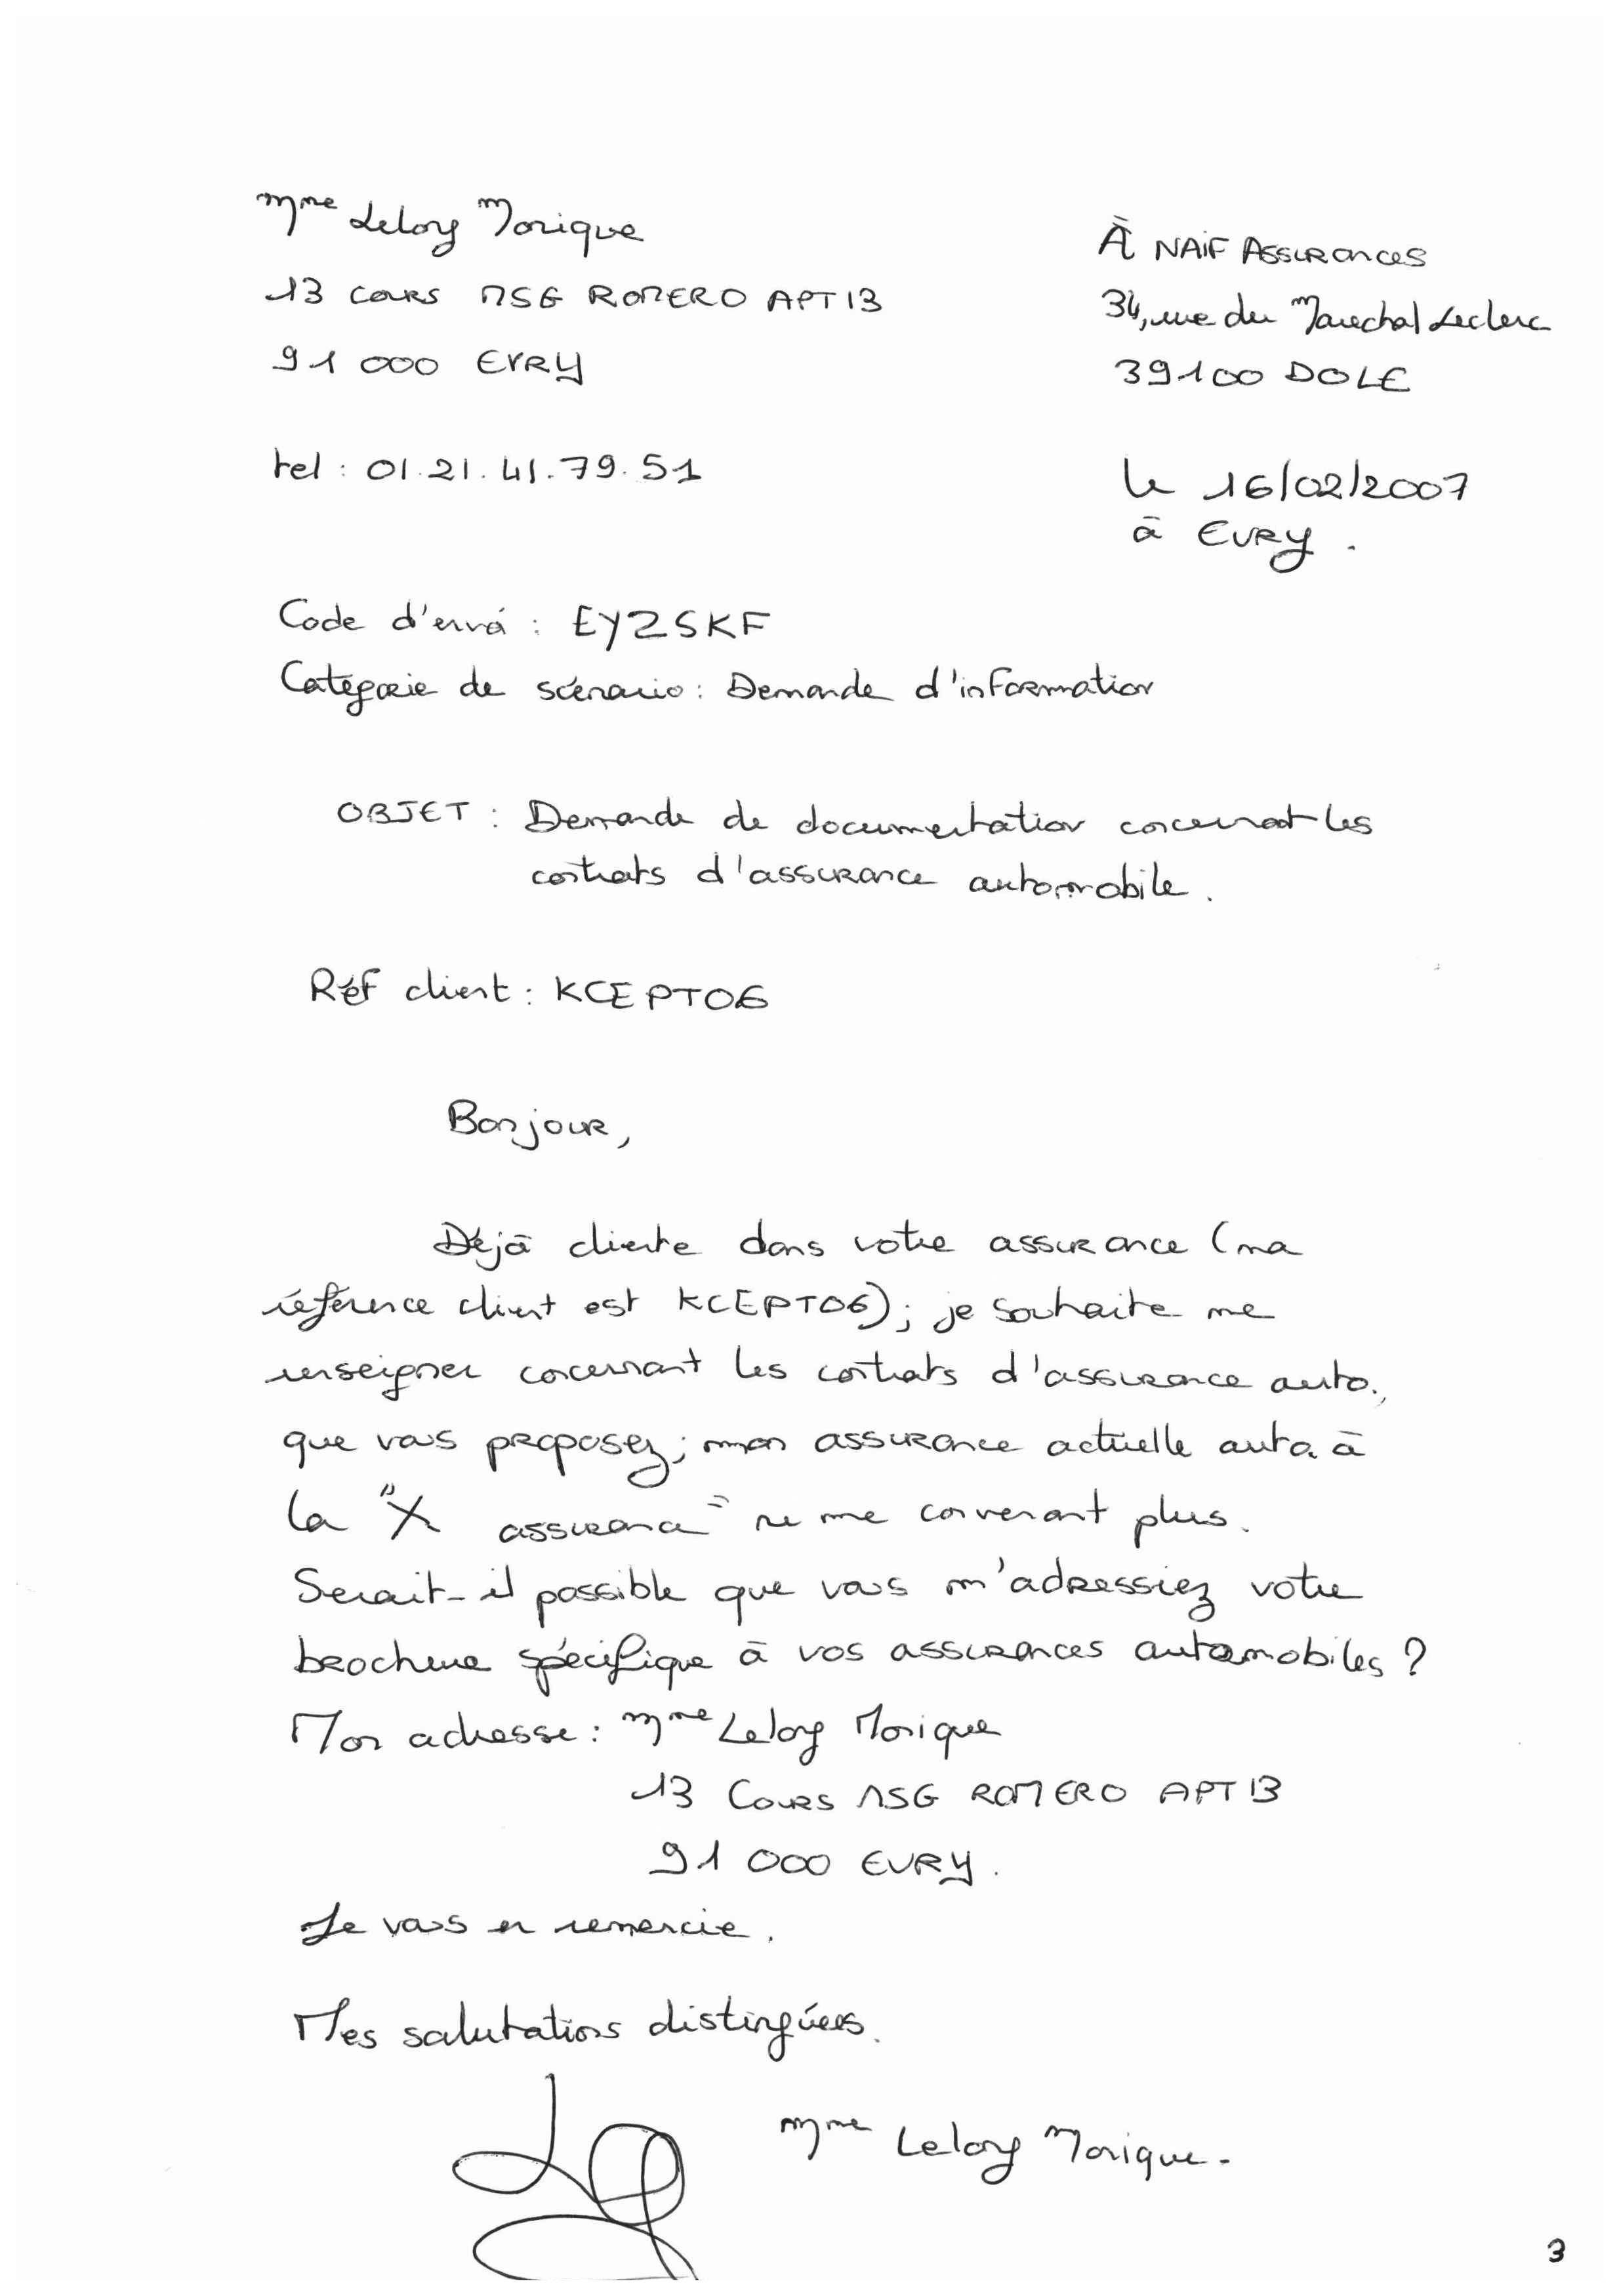 Mme Lelong Monique
13 cours MSG ROMERO APT 13
91 000 EVRY
tel : 01.21.41.79.51
À NAIF ASSURANCES
34, rue du Marechal Leclerc
39100 DOLE
le 16/02/2007
à EVRY.
Code d'envoi : EYZSKF
Catégorie de scénario : Demande d'information
OBJET : Demande de documentation concernant les
contrats d'assurance automobile.
Réf client : KCEPT06
Bonjour,
Déjà cliente dans votre assurance (ma
référence client est KCEPT06) ; je souhaite me
renseigner concernant les contrats d'assurance auto.,
que vous proposez ; mon assurance actuelle auto. à
la "X assurance" ne me convenant plus.
Serait-il possible que vous m'adressiez votre
brochure spécifique à vos assurances automobiles ?
Mon adresse : Mme Lelong Monique
13 Cours MSG ROMERO APT 13
91 000 EVRY.
Je vous en remercie.
Mes salutations distinguées.
Mme Lelong Monique.
3